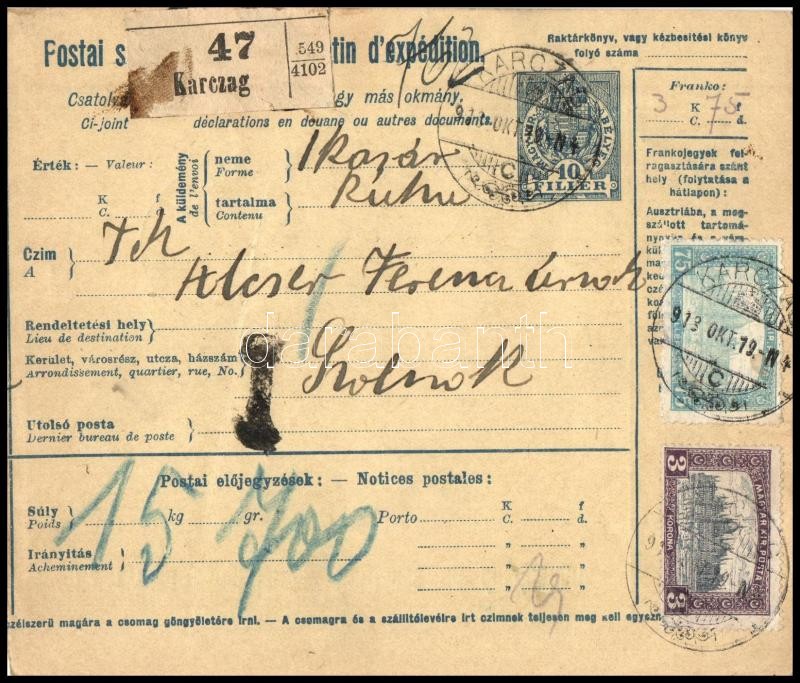 47
549
4102
Karczag
Postai s
tin d'expédition.
Raktárkönyv, vagy kézbesitési könyv
folyó száma
Csatoly
gy más okmány.
Ci-joint
déclarations en douane ou autres documents.
Franko:
3 K 75 f
C. d.
MAGYAR
BÉLYEG
10
FILLÉR
KARCZAG
913 OKT. 19.-N4
C
Érték: — Valeur:
K f
C. c.
A küldemény
de l'envoi
neme
Forme
1 kosár
tartalma
Contenu
Ruha
Frankojegyek fel-
ragasztására szánt
hely (folytatása a
hátlapon):
Ausztriába, a meg-
szállott tartomá-
Czim
A
Ferencz
Rendeltetési hely
Lieu de destination
Kerület, városrész, utcza, házszám
Arrondissement, quartier, rue, No.
Szolnok
75
KARCZAG
913 OKT. 19.-N4
C
Utolsó posta
Dernier bureau de poste
Postai előjegyzések: — Notices postales:
Súly
Poids
15 kg 700 gr.
Porto
K f
C. d.
Irányitás
Acheminement
3
MAGYAR KIR. POSTA
KORONA
3
czélszerű magára a csomag göngyöletére irni. — A csomagra és a szállitólevélre irt czimnek teljesen meg kell egyezn
darabanth